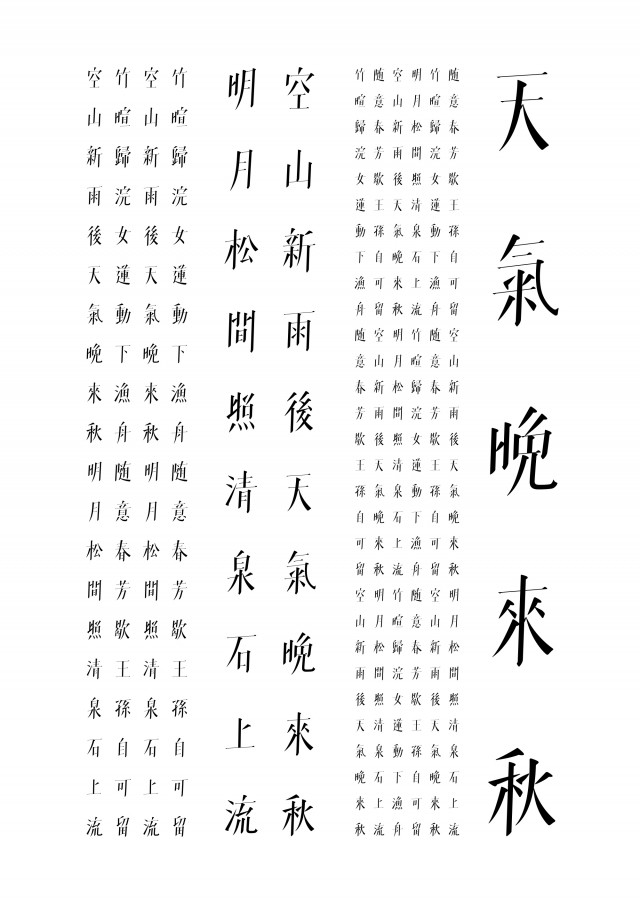 天氣晚來秋
随意春芳歇王孫自可留空山新雨後天氣晚來秋明月松間照清泉石上流
竹喧歸浣女蓮動下漁舟随意春芳歇王孫自可留空山新雨後天氣晚來秋
明月松間照清泉石上流竹喧歸浣女蓮動下漁舟随意春芳歇王孫自可留
空山新雨後天氣晚來秋明月松間照清泉石上流竹喧歸浣女蓮動下漁舟
随意春芳歇王孫自可留空山新雨後天氣晚來秋明月松間照清泉石上流
竹喧歸浣女蓮動下漁舟随意春芳歇王孫自可留空山新雨後天氣晚來秋
空山新雨後天氣晚來秋
明月松間照清泉石上流
竹喧歸浣女蓮動下漁舟随意春芳歇王孫自可留
空山新雨後天氣晚來秋明月松間照清泉石上流
竹喧歸浣女蓮動下漁舟随意春芳歇王孫自可留
空山新雨後天氣晚來秋明月松間照清泉石上流